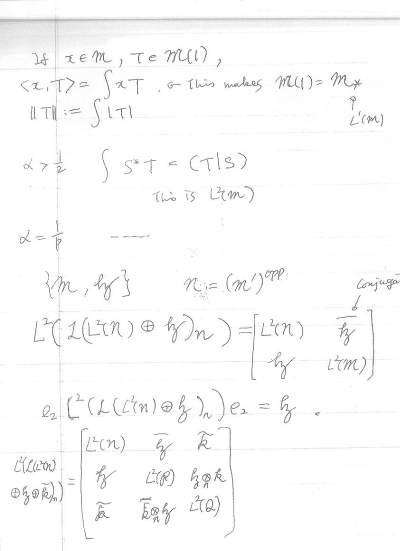 If x ∈ m, T ∈ m(1),
<x, T> = ∫ x T. ← This makes m(1) = m_*
||T|| := ∫ |T|
L¹(m)
α > 1/2 ∫ S*T = (T|S)
This is L²(m)
α = 1/p -----
{m, h} n := (m')^opp
conjuga
L²(L(L²(n) ⊕ h)_n) = [ L²(n) h̄
h L²(m) ]
e₂ [L²(L(L²(n) ⊕ h)_n) e₂ = h .
L²(L(L²(n) ⊕ h ⊕ k̄)_n) = [ L²(n) h̄ k̄
h L²(R) h ⊗_n k
k̄ k̄ ⊗_n h L²(Q) ]